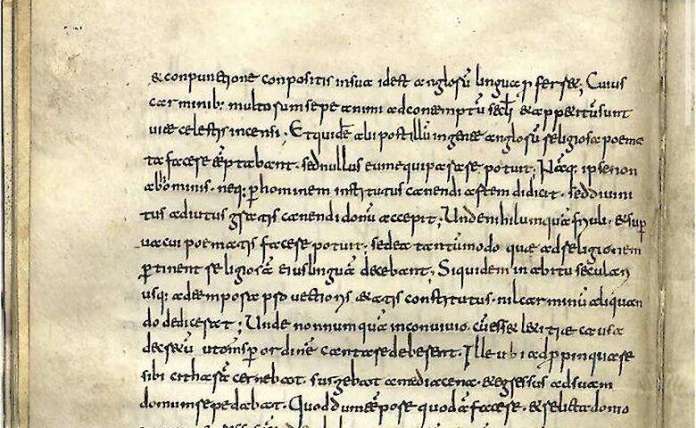 & conpunctione conpositis insua idest anglorū lingua ꝓferræ; Cuius
carminib; multorum sepe animi adcontemptū sęcli & appetitū sunt
uitæ celestis incensi. Et quidē alii post illū ingente anglorū religiosa poema
ta facere tēptabant. sed nullus eum equiparare potuit; Nāq; ipse non
ab hominis. neq; ꝑ hominem institutus canendi artem didicit. sed diuini
tus adiutus gratis canendi donū accepit; Unde nihil unquā friuoli. & suꝑ
uacui poematis facere potuit. sed ea tantūmodo quæ ad religionem
ꝑtinent religiosā eius linguā decebant; Siquidem in abitu seculari
usq; ad tempora ꝓuectioris ætatis constitutus. nil carminū aliquan
do didicerat; Unde nonnumquā in conuiuio. cū esset letitiæ causa
decretū ut omnes ꝑ ordinē cantare deberent. Ille ubi adꝓpinquare
sibi citharā cernebat. surgebat a media cena. & egressus ad suam
domum repedabat. Quod dum tēpore quodā faceret. & relicta domo